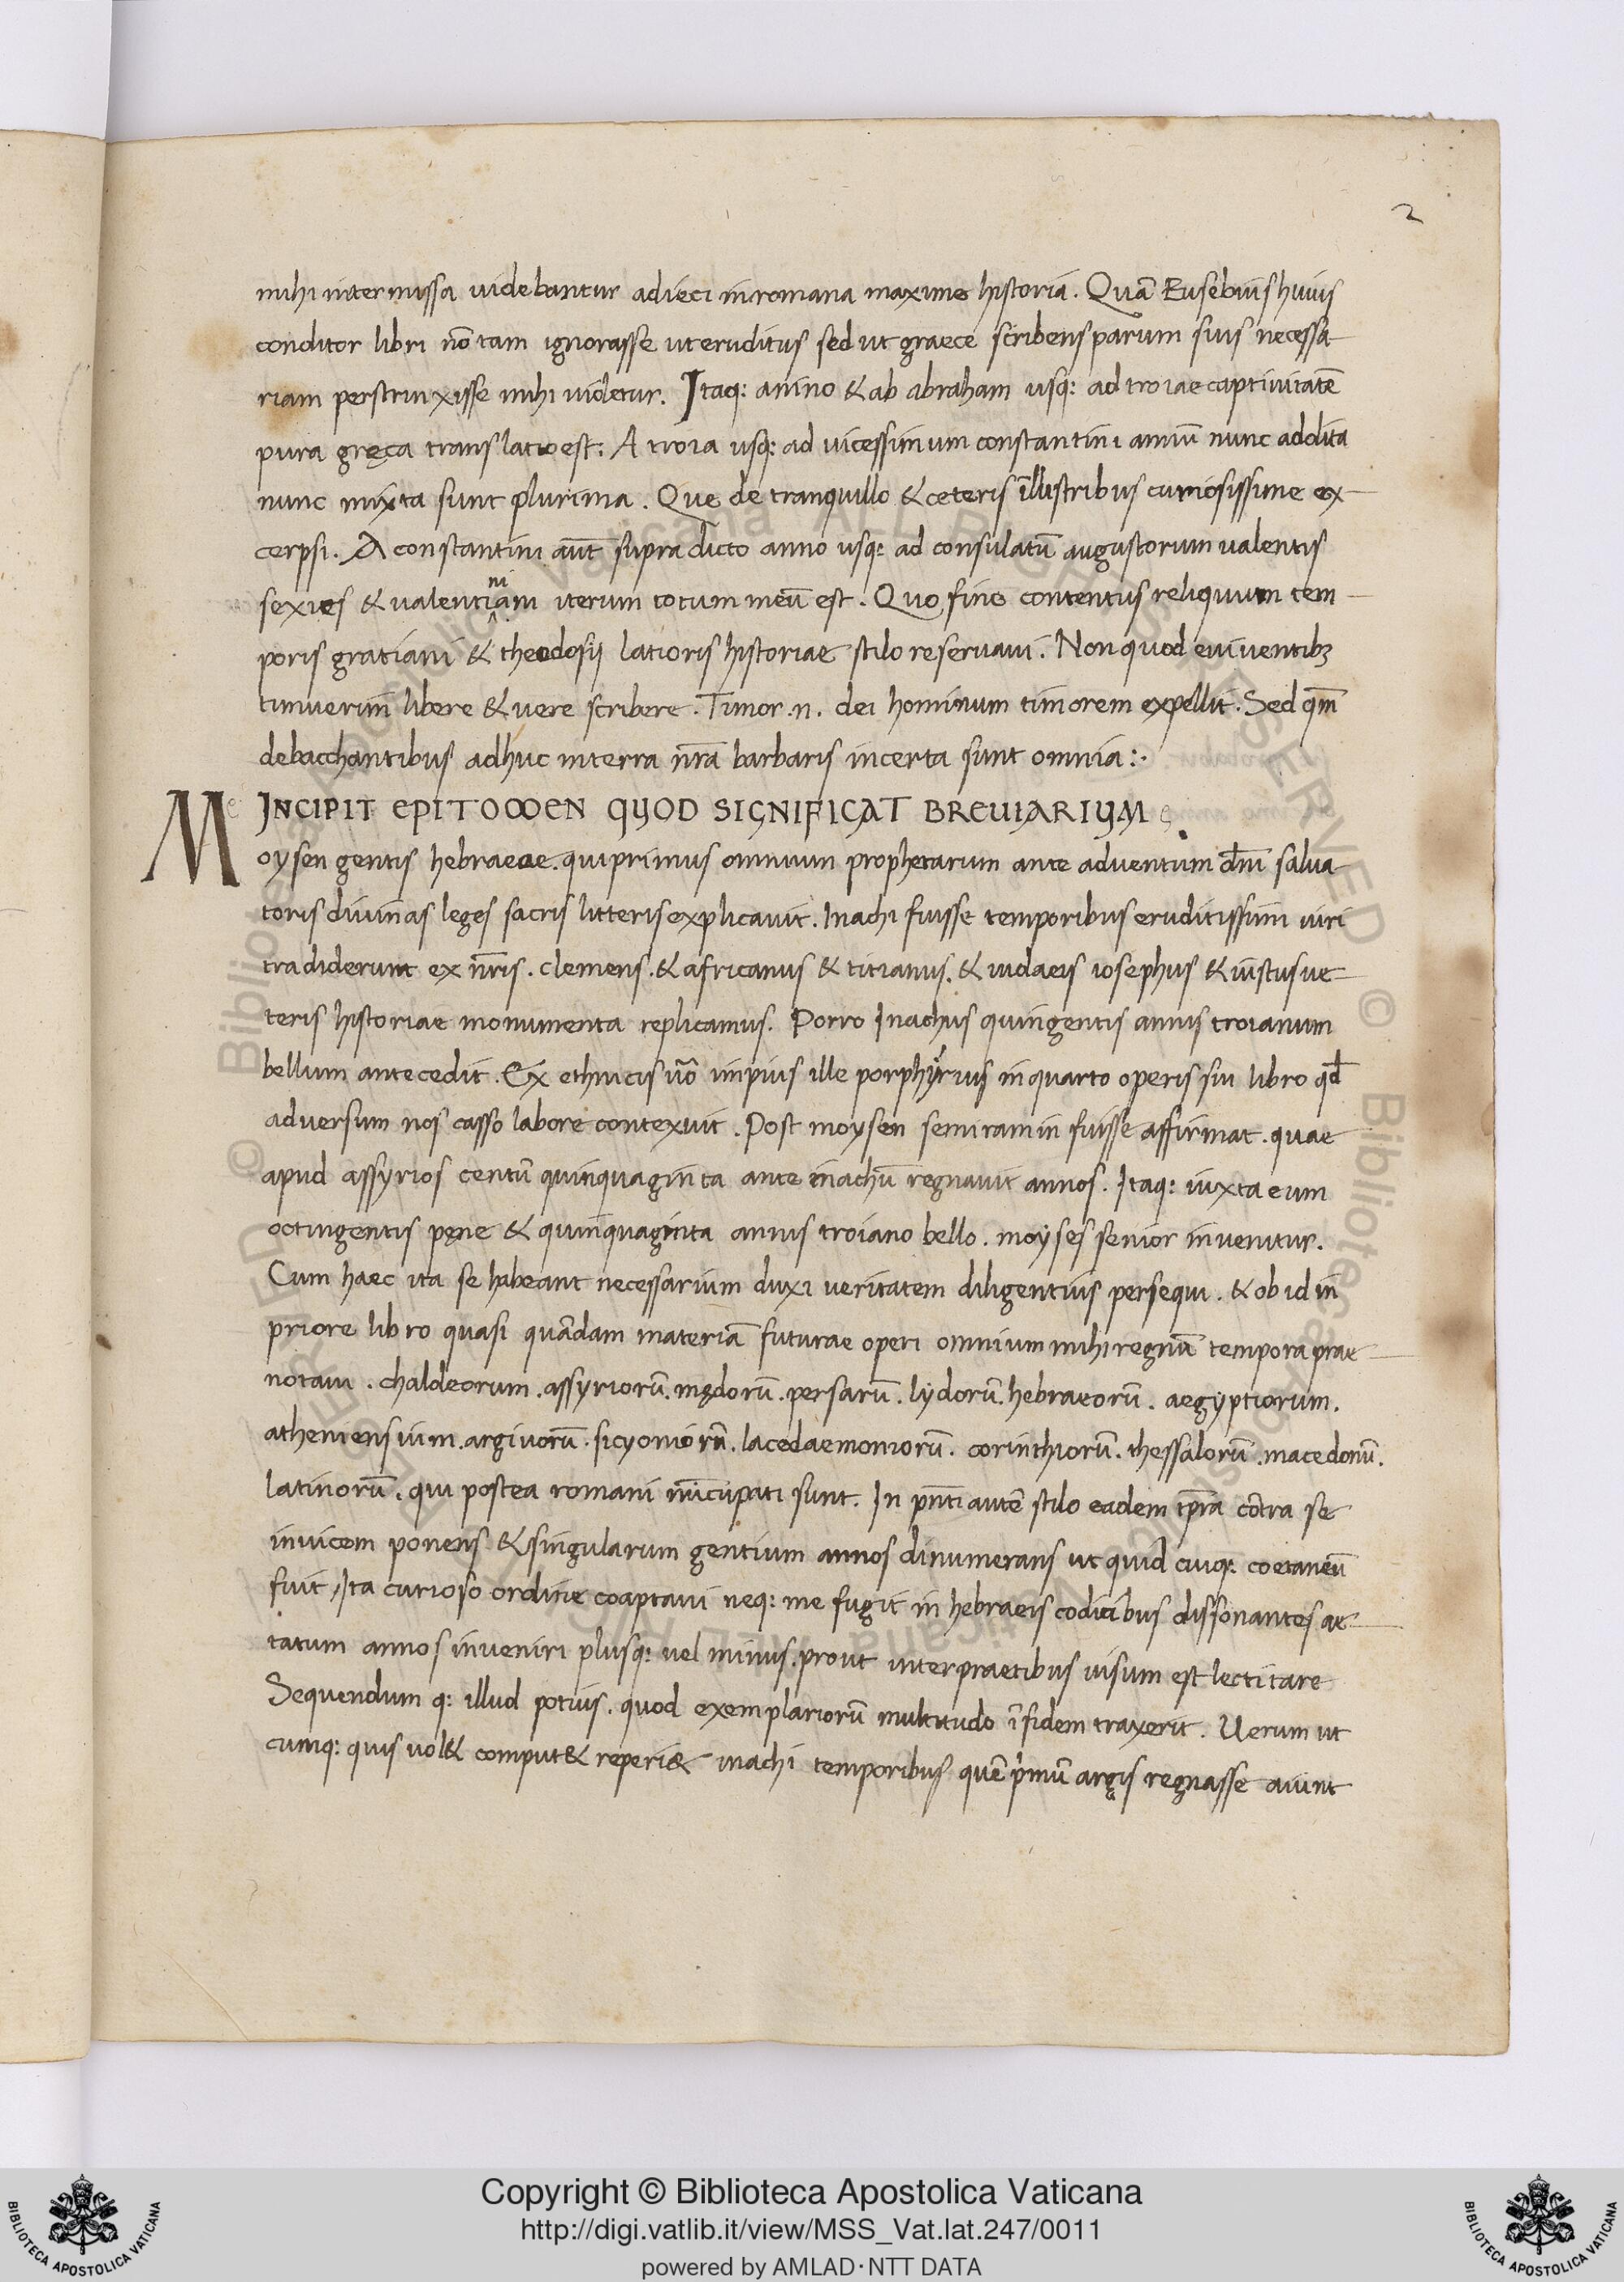 2
mihi intermissa uidebantur adieci in romana maxime historia. Quā Eusebius huius
conditor libri nō tam ignorasse ut eruditus sed ut graece scribens parum suis necessa-
riam perstrinxisse mihi uidetur. Itaq: a nino & ab abraham usq: ad troiae captiuitatē
pura gręca translatio est: A troia usq: ad uicessimum constantini annū nunc addita
nunc mixta sunt plurima. Que de tranquillo & ceteris īllustribus curiosissime ex-
cerpsi. A constantini aūt supra dicto anno usq: ad consulatū augustorum ualentis
sexies & ualentiniani iterum totum meū est. Quo fine contentus reliquum tem-
poris gratiani & theodosij latioris historiae stilo reseruaui. Non quod euiuentibꝫ
timuerim libere & uere scribere. Timor .n. dei hominum timorem expellit. Sed qm̄
debacchantibus adhuc in terra nr̄a barbaris incerta sunt omnia:·
INCIPIT EPITOMEN QUOD SIGNIFICAT BREUIARIUM
Moysen gentis hebraeae. qui primus omnium prophetarum ante aduentum dn̄i salua-
toris diuinas leges sacris litteris explicauit. Inachi fuisse temporibus eruditissimi uiri
tradiderunt ex nr̄is. clemens. & africanus & titianus. & iudaeis iosephus & iustus ue-
teris historiae monumenta replicamus. Porro Inachus quingentis annis troianum
bellum antecedit. Ex ethnicis uō impius ille porphyrius in quarto operis sui libro qd̄
aduersum nos casso labore contexuit. Post moysen semiramin fuisse affirmat. quae
apud assyrios centū quinquaginta ante inachū regnauit annos. Itaq: iuxta eum
octingentis pęne & quinquaginta annis troiano bello. moyses senior inuenitur.
Cum haec ita se habeant necessarium duxi ueritatem diligentius persequi. & ob id in
priore libro quasi quādam materiā futurae operi omnium mihi regnū tempora prae-
notaui. chaldeorum. assyriorū. mędorū. persarū. lydorū. hebraeorū. aegyptiorum.
atheniensium. argiuorū. sicyoniorū. lacedaemoniorū. corinthiorū. thessalorū. macedonū.
latinorū. qui postea romani nuncupati sunt. In pn̄ti autē stilo eadem tp̄ra cōtra se
inuicem ponens & singularum gentium annos dinumerans ut quid cuiq: coetaneū
fuit, Ita curioso ordine coaptaui neq: me fugit in hebraeis codicibus dissonantes ae-
tatum annos inueniri plusq: uel minus. prout interpraetibus uisum est lectitare
Sequendum q: illud potius. quod exemplariorū multitudo ī fidem traxerit. Uerum ut
cumq: quis uol& comput& reperi& inachi temporibus quē primū argis regnasse aiunt
Copyright © Biblioteca Apostolica Vaticana
http://digi.vatlib.it/view/MSS_Vat.lat.247/0011
powered by AMLAD·NTT DATA
BIBLIOTECA APOSTOLICA VATICANA
BIBLIOTECA APOSTOLICA VATICANA